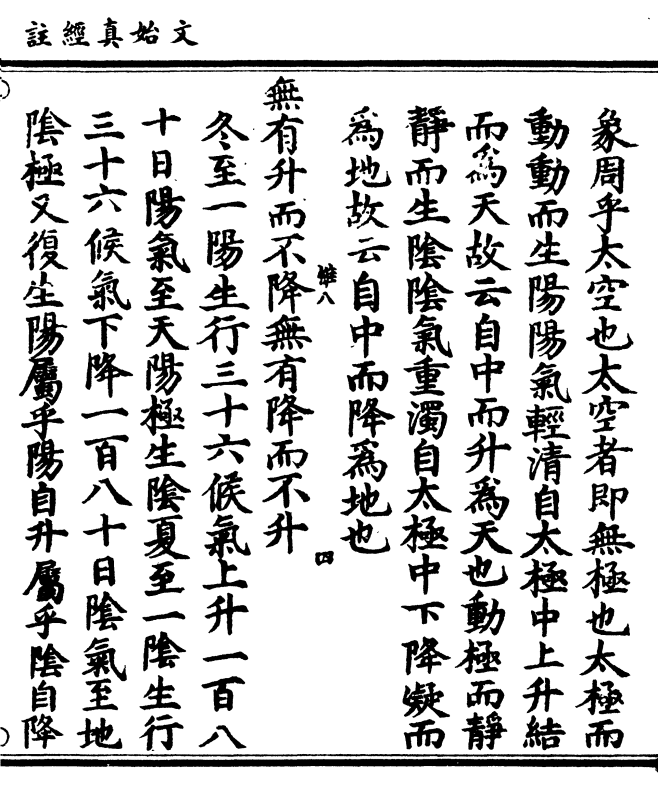 文始真經註
象周乎太空也太空者即無極也太極而
動動而生陽陽氣輕清自太極中上升結
而為天故云自中而升為天也動極而靜
靜而生陰陰氣重濁自太極中下降凝而
為地故云自中而降為地也
無有升而不降無有降而不升
四
冬至一陽生行三十六候氣上升一百八
十日陽氣至天陽極生陰夏至一陰生行
三十六候氣下降一百八十日陰氣至地
陰極又復生陽屬乎陽自升屬乎陰自降